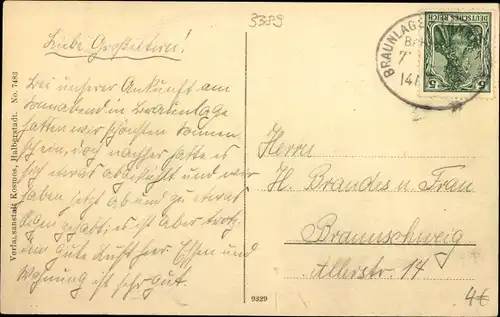 3389
Liebe Großeltern!
Bei unserer Ankunft am
Sonnabend in Braunlage
hatten wir schönsten Sonnen
schein, doch nachher hatte es
sich etwas abgekühlt und wir
haben jetzt ab und zu etwas
Regen gehabt; es ist aber trotz-
dem gute Luft hier. Essen und
Wohnung ist sehr gut.
Verlagsanstalt Kosmos, Halberstadt. No. 7483
9329
BRAUNLAGE
DEUTSCHES REICH
5 5
Herrn
H. Brandes u. Frau
Braunschweig
Allerstr. 14
4€